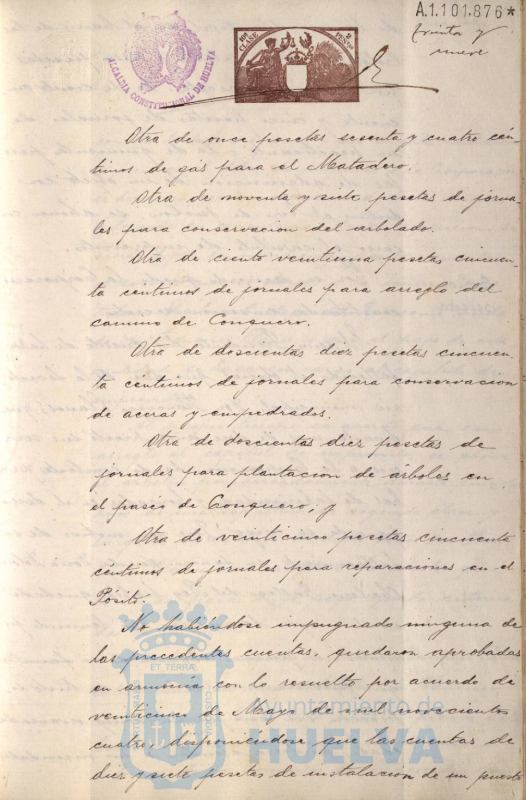 A.1.101.876*
treinta y
nueve
ALCALDIA CONSTITUCIONAL DE HUELVA
10ª CLASE
2 PESETAS
Otra de once pesetas sesenta y cuatro cén-
timos de gas para el Matadero.
Otra de noventa y siete pesetas de jorna-
les para conservacion del arbolado.
Otra de ciento veintiuna pesetas cincuen-
ta centimos de jornales para arreglo del
camino de Conquero.
Otra de doscientas diez pesetas cincuen-
ta centimos de jornales para conservacion
de aceras y empedrados.
Otra de doscientas diez pesetas de
jornales para plantacion de árboles en
el paseo de Conquero, y
Otra de veinticinco pesetas cincuenta
céntimos de jornales para reparaciones en el
Pósito.
No habiendose impugnado ninguna de
las precedentes cuentas, quedaron aprobadas
en armonía con lo resuelto por acuerdo de
veinticinco de Mayo de mil novecientos
cuatro, disponiendose que las cuentas de
diez y siete pesetas de instalacion de un puesto
ET TERRÆ
Ayuntamiento de
HUELVA